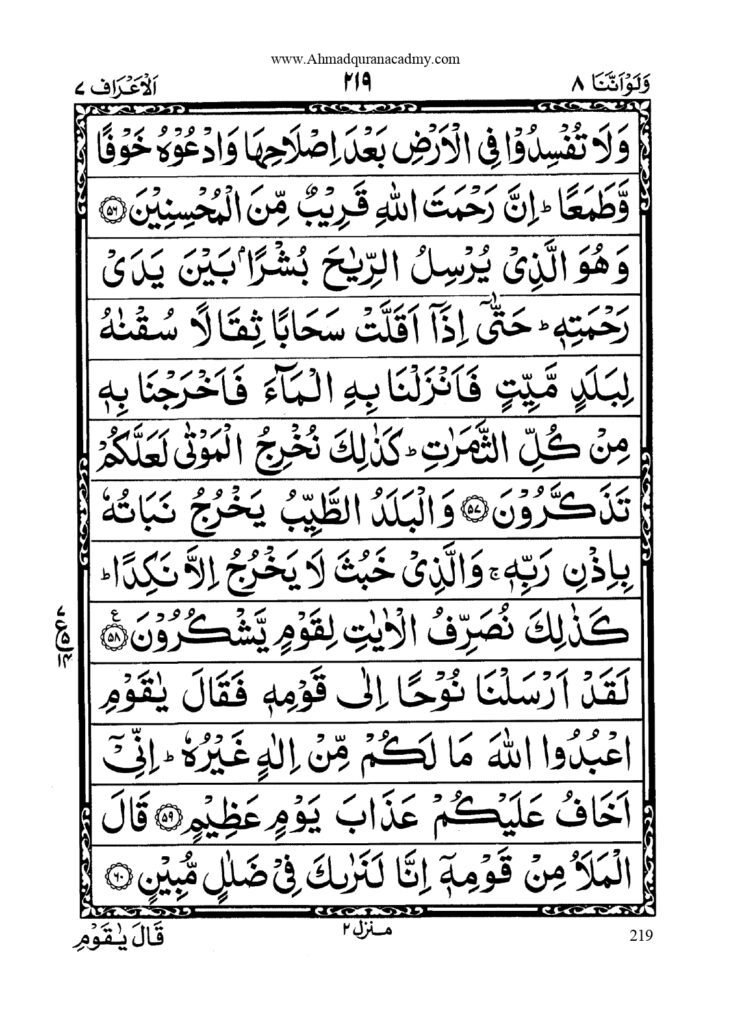 www.Ahmadquranacadmy.com
وَلَوْاَنَّنَا ۸
۲۱۹
اَلْاَعْرَاف ۷
وَلَا تُفْسِدُوْا فِی الْاَرْضِ بَعْدَ اِصْلَاحِهَا وَادْعُوْهُ خَوْفًا
وَّطَمَعًا ؕ اِنَّ رَحْمَتَ اللّٰهِ قَرِیْبٌ مِّنَ الْمُحْسِنِیْنَ ﴿۵۶﴾
وَهُوَ الَّذِیْ یُرْسِلُ الرِّیٰحَ بُشْرًاۢ بَیْنَ یَدَیْ
رَحْمَتِهٖ ؕ حَتّٰۤی اِذَاۤ اَقَلَّتْ سَحَابًا ثِقَالًا سُقْنٰهُ
لِبَلَدٍ مَّیِّتٍ فَاَنْزَلْنَا بِهِ الْمَآءَ فَاَخْرَجْنَا بِهٖ
مِنْ كُلِّ الثَّمَرٰتِ ؕ كَذٰلِكَ نُخْرِجُ الْمَوْتٰی لَعَلَّكُمْ
تَذَكَّرُوْنَ ﴿۵۷﴾ وَالْبَلَدُ الطَّیِّبُ یَخْرُجُ نَبَاتُهٗ
بِاِذْنِ رَبِّهٖ ۚ وَالَّذِیْ خَبُثَ لَا یَخْرُجُ اِلَّا نَكِدًا ؕ
كَذٰلِكَ نُصَرِّفُ الْاٰیٰتِ لِقَوْمٍ یَّشْكُرُوْنَ ﴿۵۸﴾ ع
لَقَدْ اَرْسَلْنَا نُوْحًا اِلٰی قَوْمِهٖ فَقَالَ یٰقَوْمِ
اعْبُدُوا اللّٰهَ مَا لَكُمْ مِّنْ اِلٰهٍ غَیْرُهٗ ؕ اِنِّیْۤ
اَخَافُ عَلَیْكُمْ عَذَابَ یَوْمٍ عَظِیْمٍ ﴿۵۹﴾ قَالَ
الْمَلَاُ مِنْ قَوْمِهٖۤ اِنَّا لَنَرٰىكَ فِیْ ضَلٰلٍ مُّبِیْنٍ ﴿۶۰﴾
منزل ۲
قَالَ یٰقَوْمِ
219